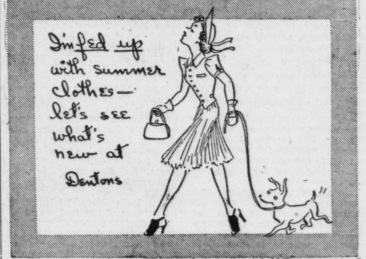 I'm fed up
with summer
clothes—
let's see
what's
new at
Dentons